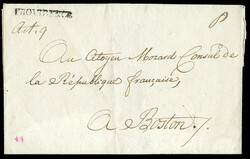 PROVIDENCE
Act. 9
Au Citoyen Mozard Consul de
la République française,
A Boston ./.